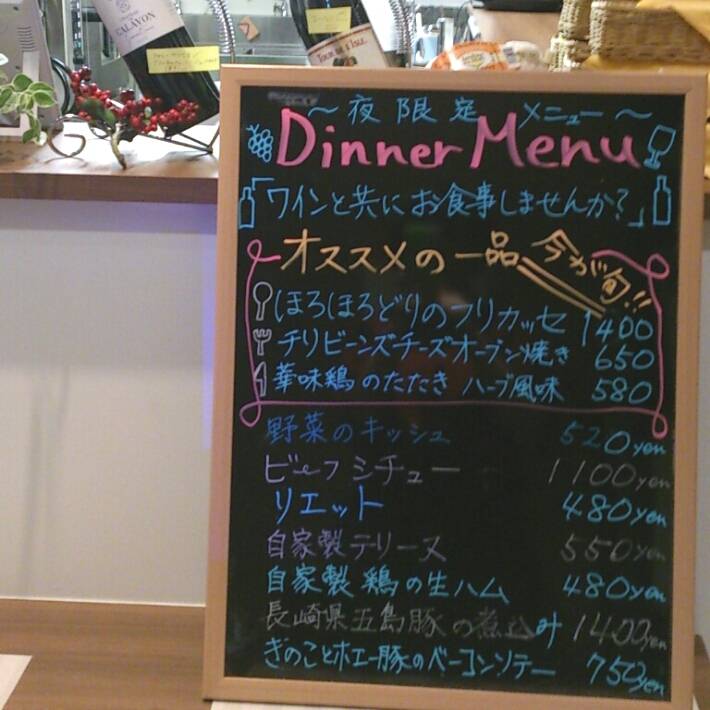 CALAVON
～夜限定 メニュー～
Dinner Menu
「ワインと共にお食事しませんか?」
オススメの一品 今が旬!!
ほろほろどりのフリカッセ 1400
チリビーンズチーズオーブン焼き 650
華味鶏のたたき ハーブ風味 580
野菜のキッシュ 520yen
ビーフシチュー 1100yen
リエット 480yen
自家製テリーヌ 550yen
自家製鶏の生ハム 480yen
長崎県五島豚の煮込み 1400yen
きのことホエー豚のベーコンソテー 750yen